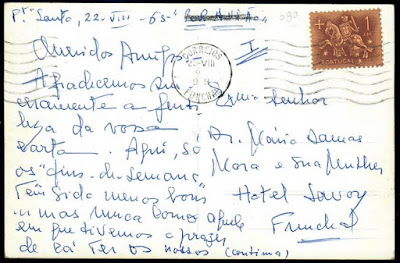 Pto Santo, 22-VIII-63-
090
I
Queridos Amigos
Agradecemos sin
ceramente a genti
leza da vossa
carta. Aqui, só
os "fins-de-semana"
Têm sido menos bons
mas nunca como aquele
em que tivemos o prazer
de cá ter os nossos (continua)
CORREIOS
22-VIII
FUNCHAL
1
PORTUGAL
Exmo Senhor
Dr. Mário Damas
Mora e sua Mulher
Hotel Savoy
Funchal